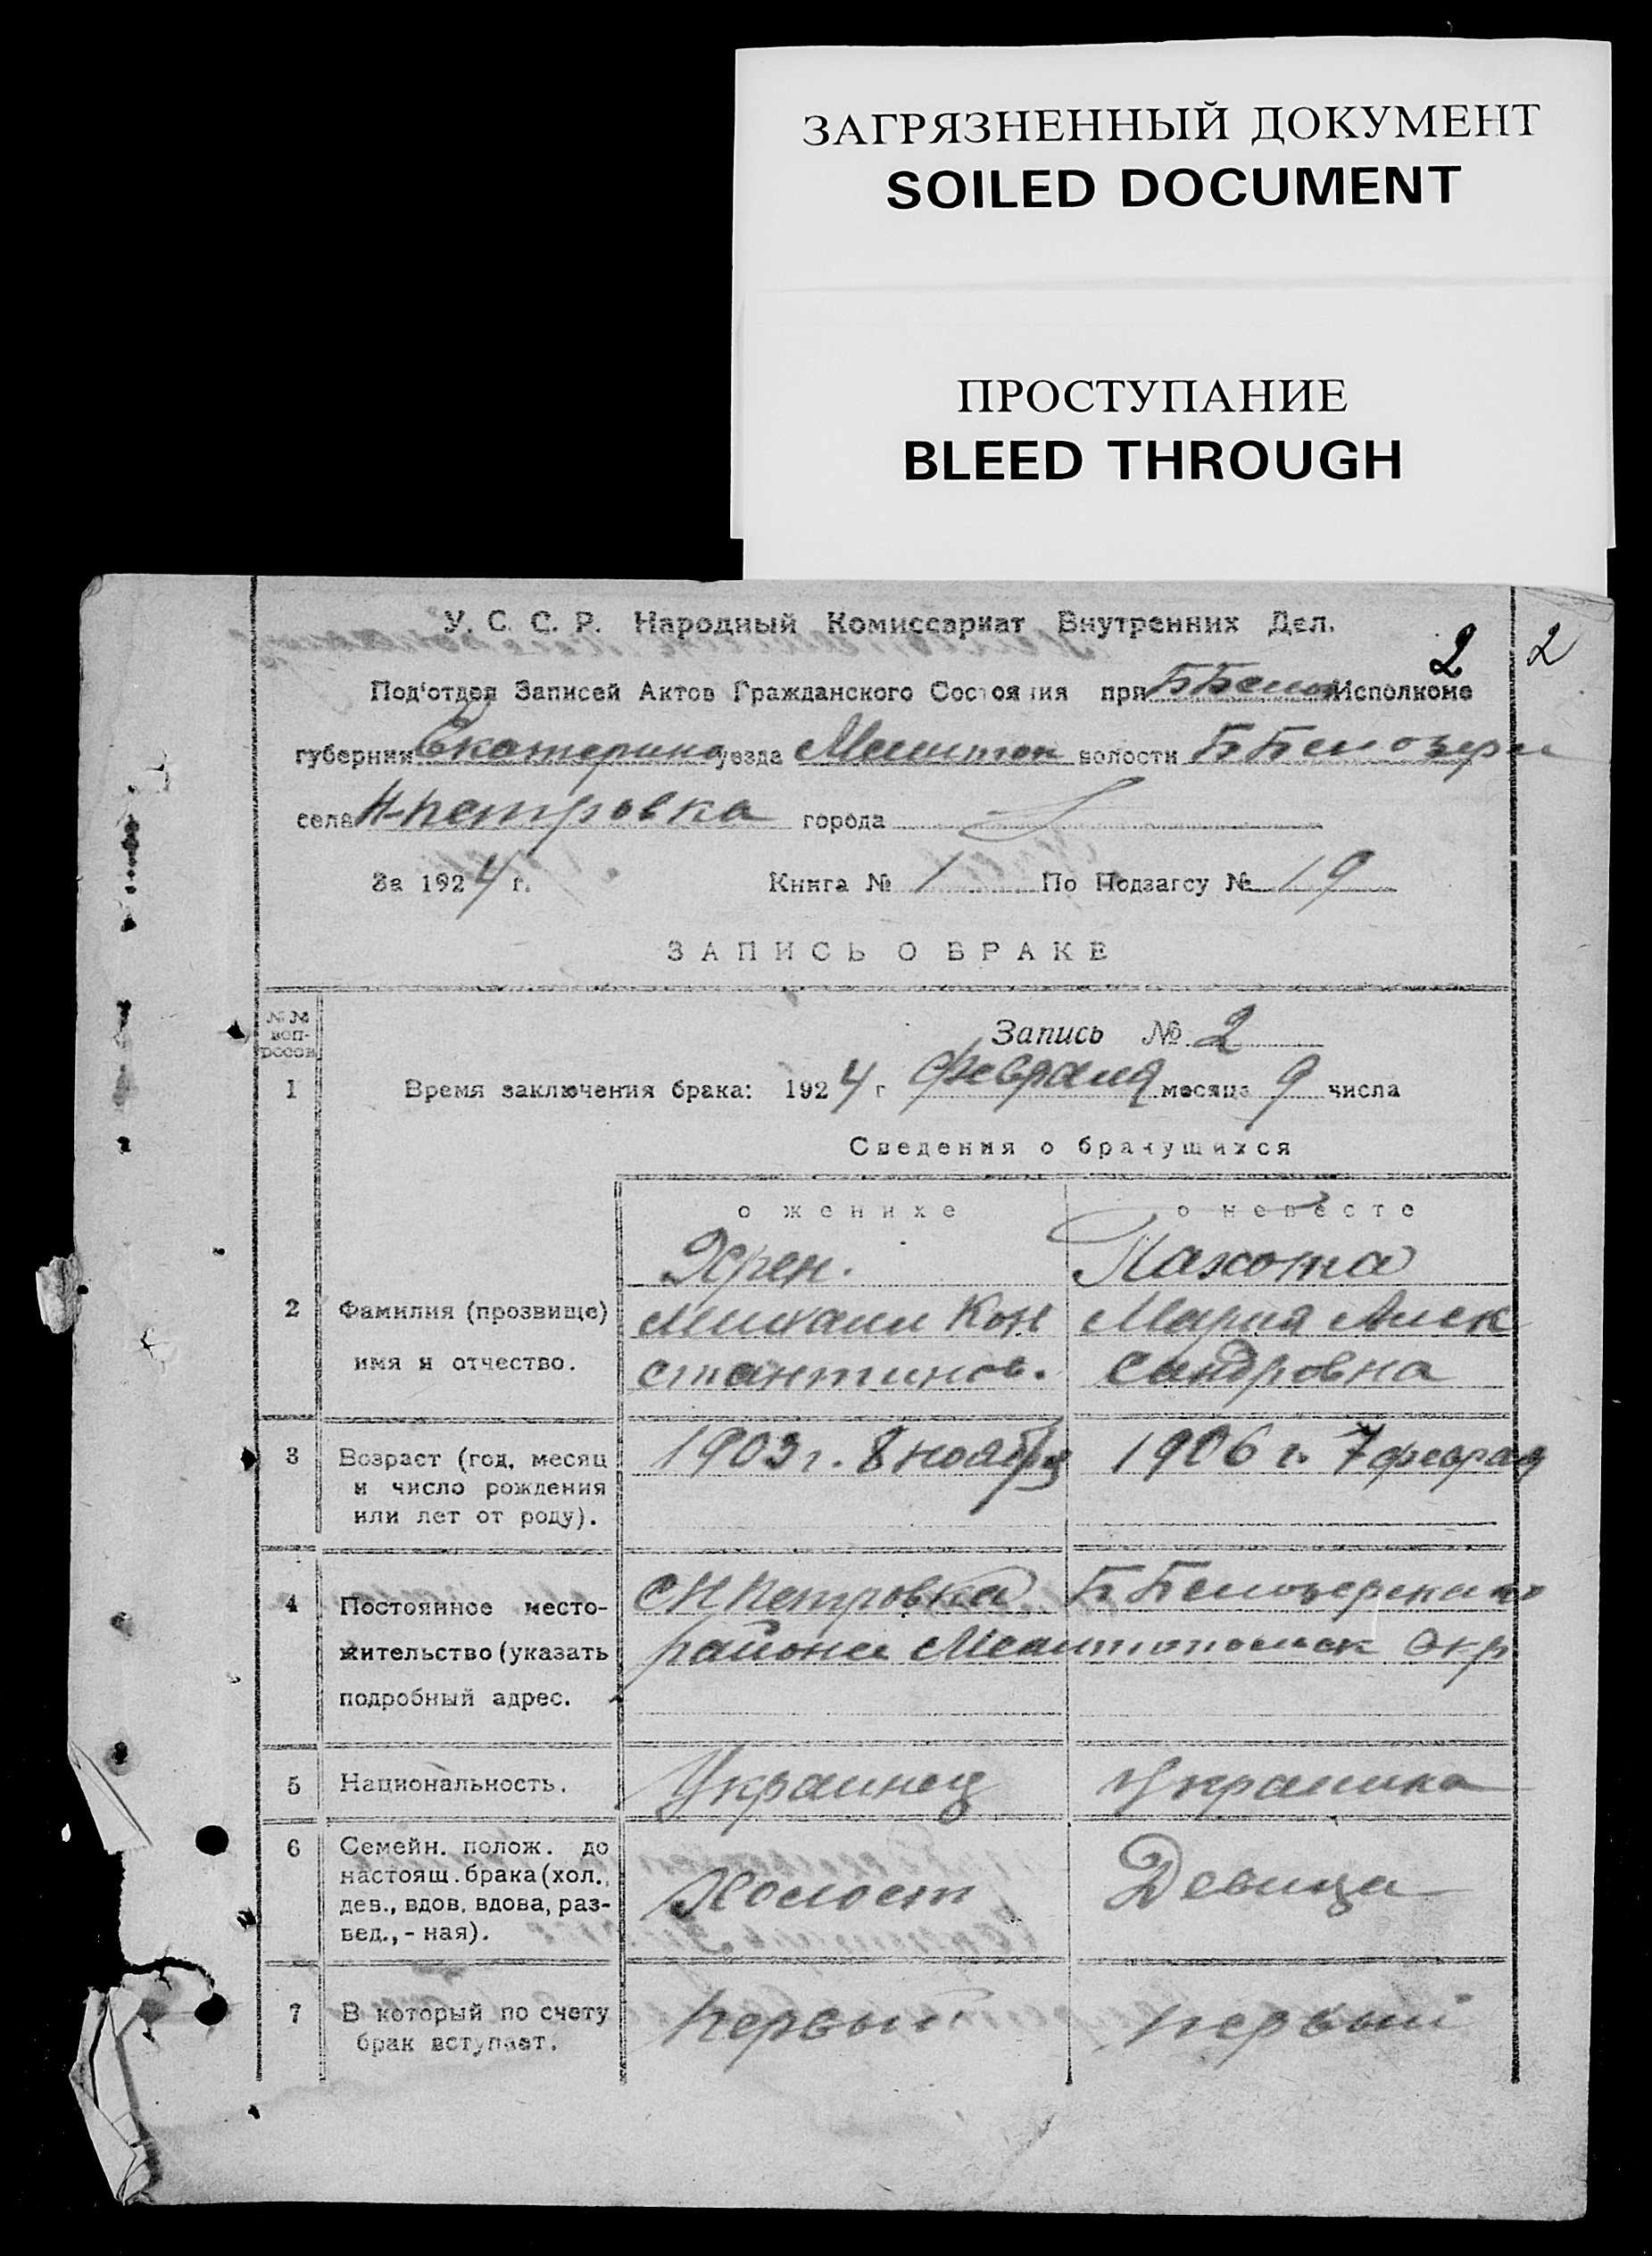 ЗАГРЯЗНЕННЫЙ ДОКУМЕНТ
SOILED DOCUMENT
ПРОСТУПАНИЕ
BLEED THROUGH
У. С. С. Р. Народный Комиссариат Внутренних Дел.
2 2
Под'отдел Записей Актов Гражданского Состояния при ББелоз Исполкоме
губернии Екатерино уезда Мелитоп волости ББелозерск
села Н-Петровка города
За 1924 г. Книга № 1 По Подзагсу № 19
ЗАПИСЬ О БРАКЕ
№№ воп-росов
Запись № 2
1 Время заключения брака: 1924 г Февраля месяца 9 числа
Сведения о брачущихся
о женихе о невесте
Хрен. Пахота
2 Фамилия (прозвище) Михаил Кон Мария Алек
имя и отчество. стантинов. сандровна
3 Возраст (год, месяц 1903 г. 8 ноября 1906 г. 7 феврал
и число рождения
или лет от роду).
4 Постоянное место- С Н Петровка Б Белозерского
жительство (указать района Мелитопольск Окр
подробный адрес.
5 Национальность. Украинец Украинка
6 Семейн. полож. до
настоящ. брака (хол., Холост Девица
дев., вдов, вдова, раз-
вед., - ная).
7 В который по счету первый первый
брак вступает.